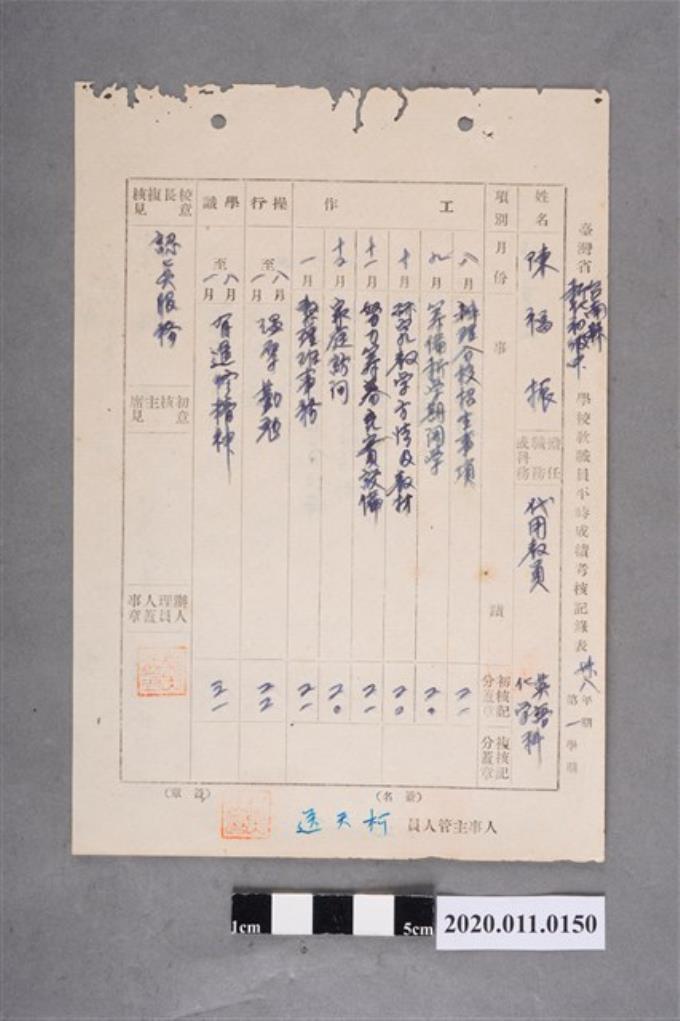 臺灣省 台南縣 新化初級中 學校教職員平時成績考核記錄表 卅八年 第一學期
姓名 陳福振 擔任職務或科務 代用教員 英語 化學科
項別 月份 事績 初核記分蓋章 複核記分蓋章
工作
八月 辦理合校招生事項 二一
九月 籌備新學期開學 二〇
十月 研究教学方法及教材 二〇
十一月 努力籌募充實設備 二一
十二月 家庭訪问 二〇
一月 整理班事務 二一
操行 八月至一月 温厚勤勉 二二
學識 八月至一月 有進修精神 三一
校長複核意見 認真服務
初核主席意見
辦理人員人事蓋章
(簽名) (蓋章)
人事主管人員 柯天送
1cm 5cm
2020.011.0150